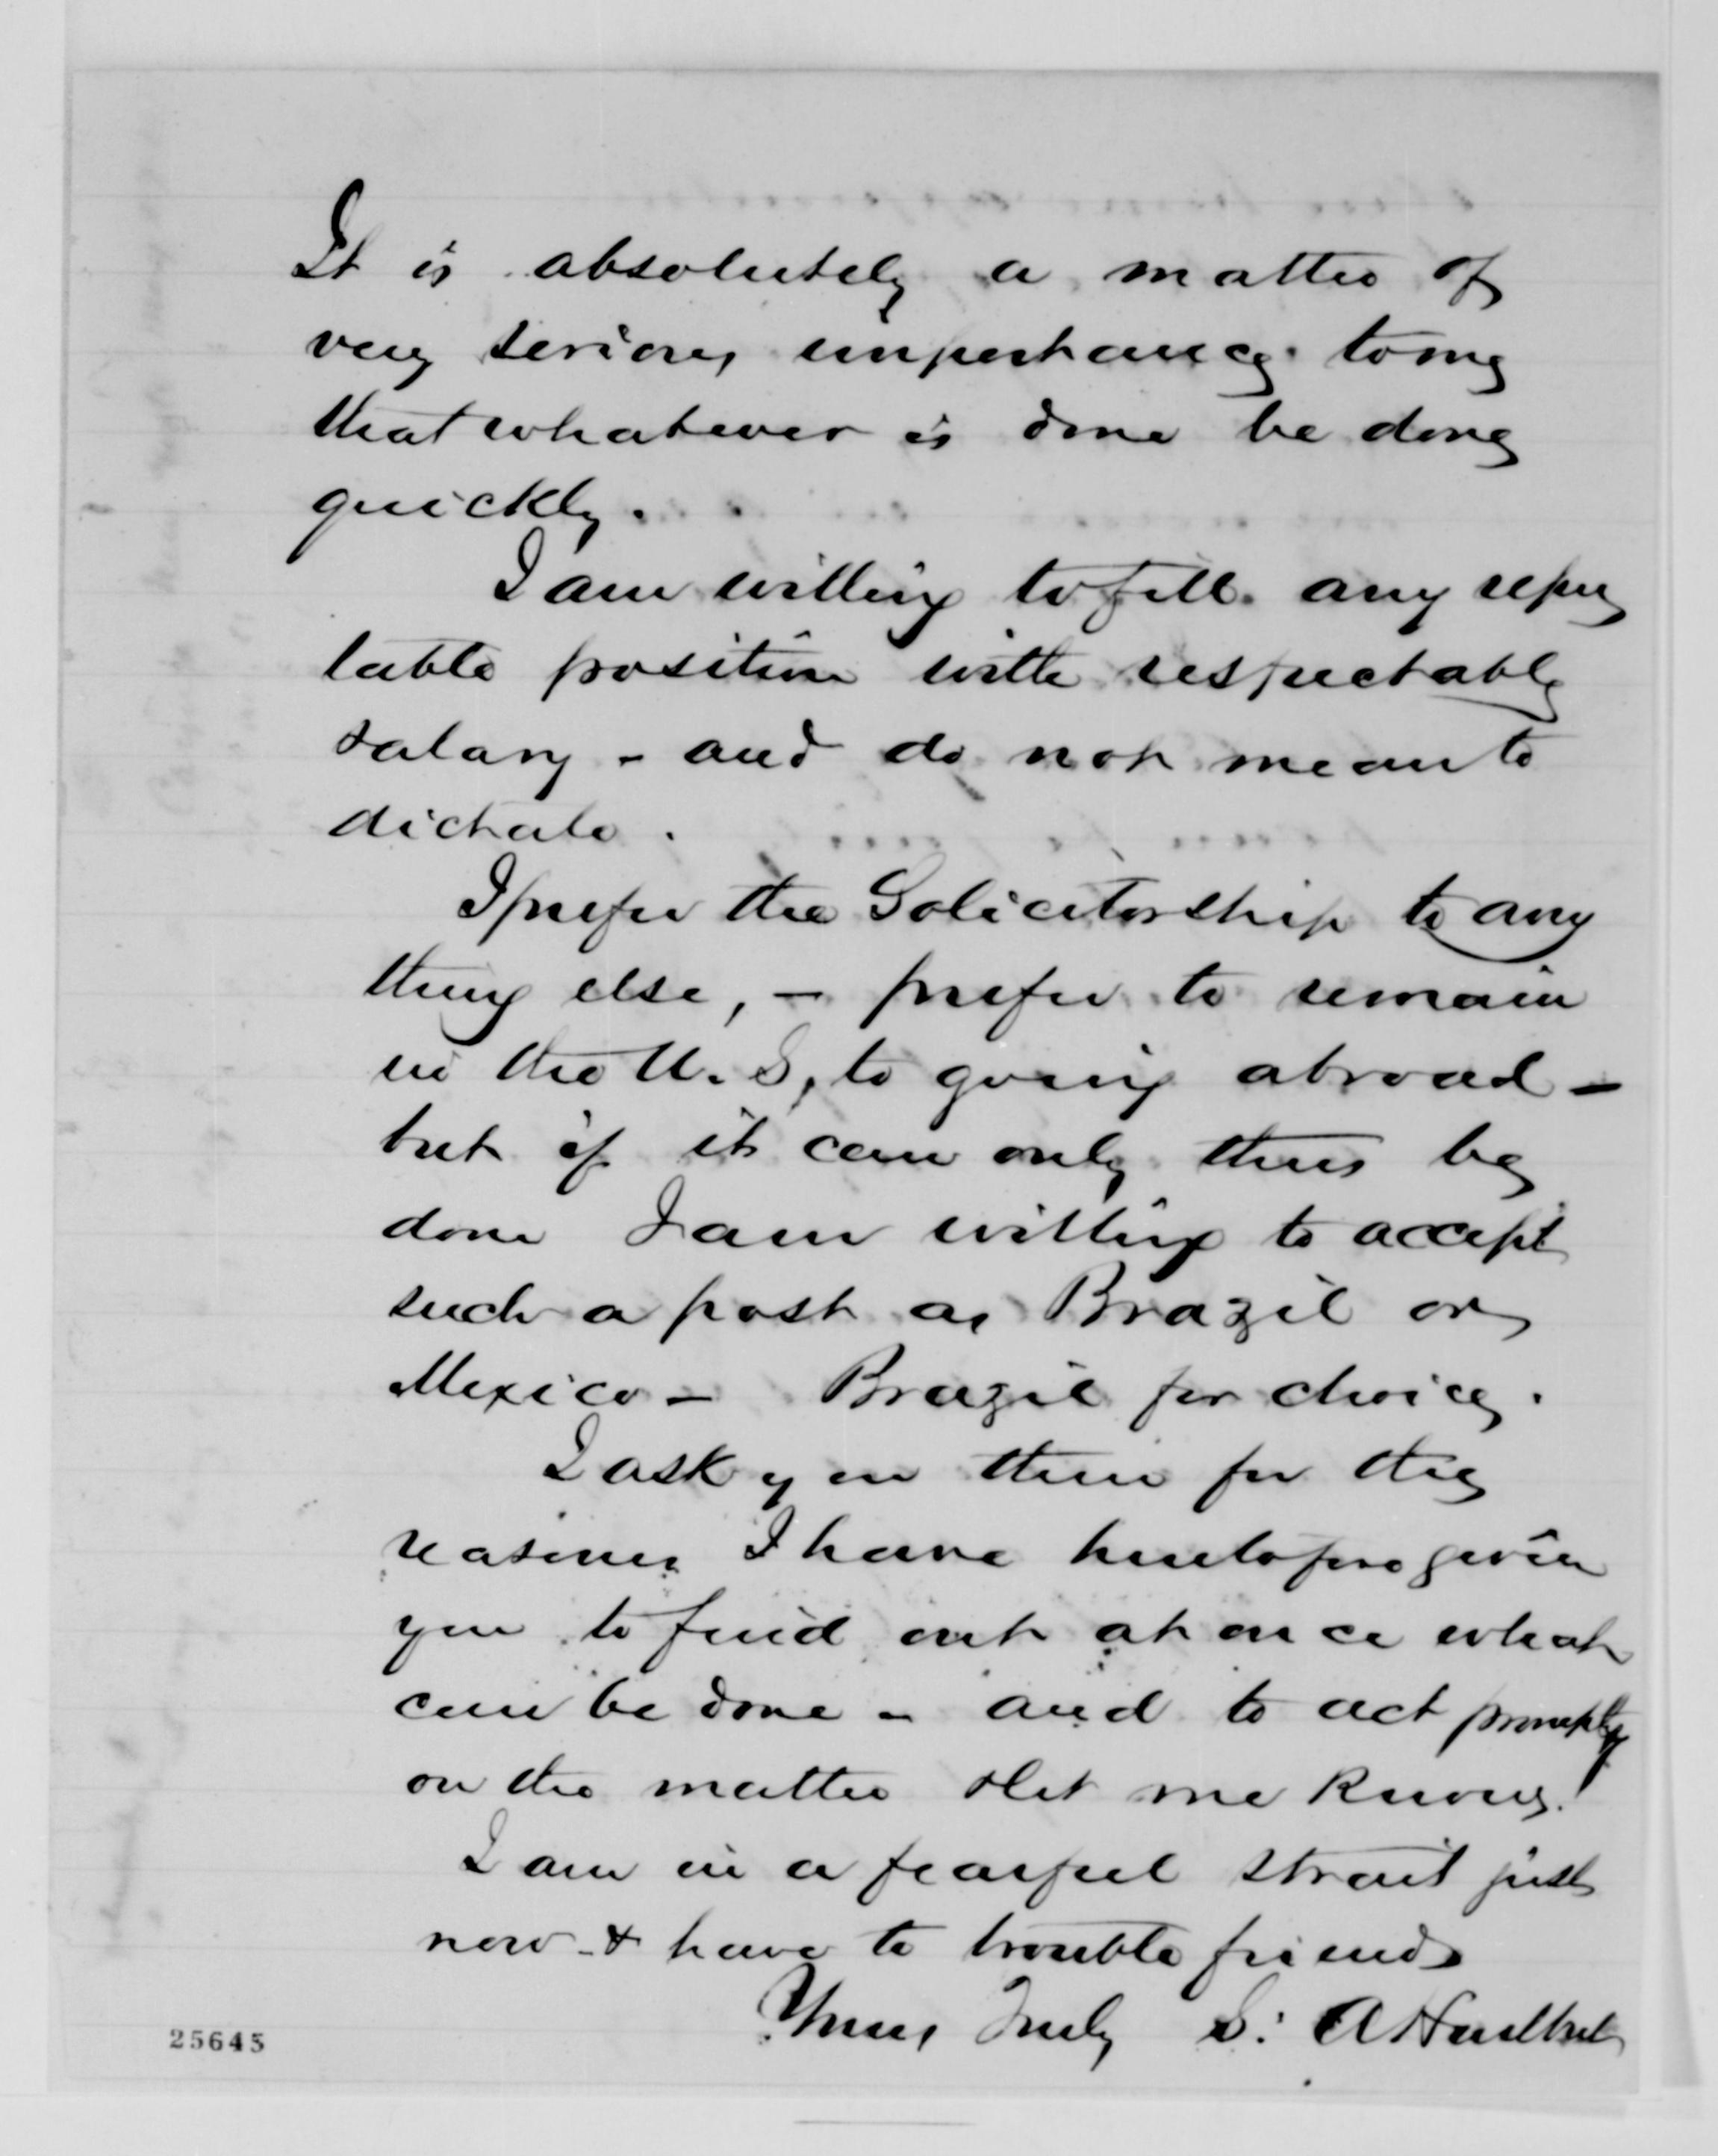 It is absolutely a matter of
very serious importance to me
that whatever is done be done
quickly.
I am willing to fill any repu
table position with respectable
salary - and do not mean to
dictate.
I prefer the Solicitorship to any
thing else, - prefer to remain
in the U. S, to going abroad -
but if it can only thus be
done I am willing to accept
such a post as Brazil or
Mexico - Brazil for choice.
I ask you then for the
reasons I have heretofore given
you to find out at once what
can be done - and to act promptly
on the matter & let me know.
I am in a fearful strait just
now - & have to trouble friends
Yours Truly S. A Hurlbut
25645